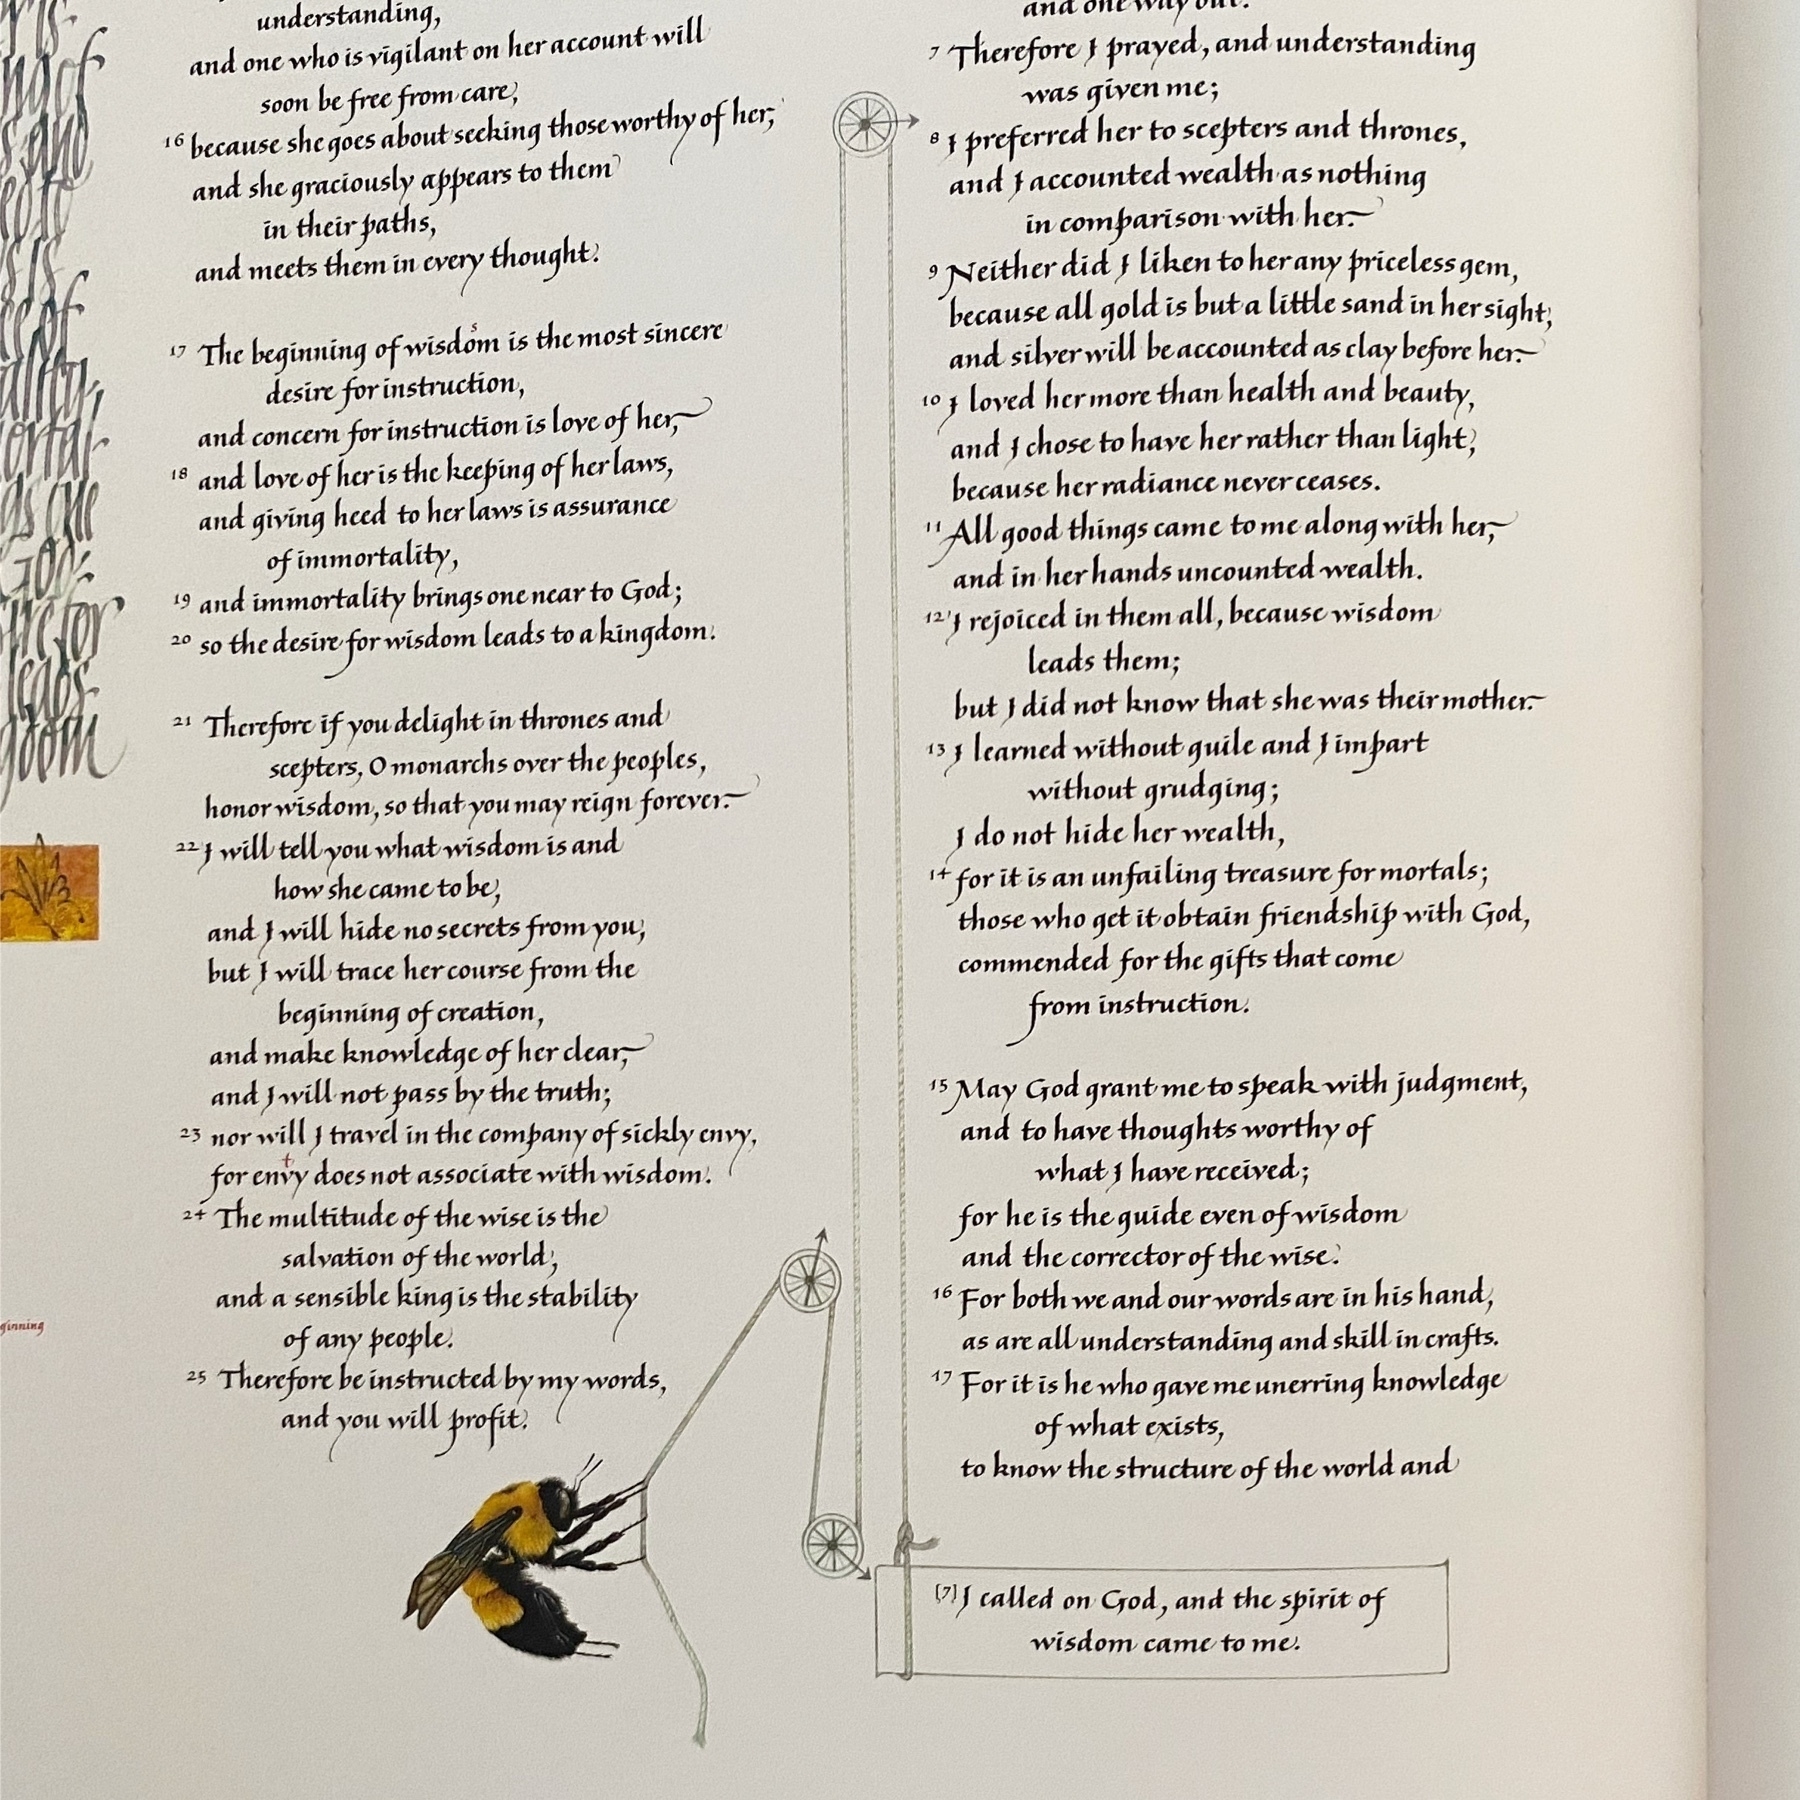 understanding,
and one who is vigilant on her account will
soon be free from care,
16 because she goes about seeking those worthy of her,
and she graciously appears to them
in their paths,
and meets them in every thought.
17 The beginning of wisdom is the most sincere
s
desire for instruction,
and concern for instruction is love of her,
18 and love of her is the keeping of her laws,
and giving heed to her laws is assurance
of immortality,
19 and immortality brings one near to God;
20 so the desire for wisdom leads to a kingdom.
21 Therefore if you delight in thrones and
scepters, O monarchs over the peoples,
honor wisdom, so that you may reign forever.
22 I will tell you what wisdom is and
how she came to be,
and I will hide no secrets from you,
but I will trace her course from the
beginning of creation,
and make knowledge of her clear,
and I will not pass by the truth;
23 nor will I travel in the company of sickly envy,
t
for envy does not associate with wisdom.
24 The multitude of the wise is the
salvation of the world,
and a sensible king is the stability
of any people.
25 Therefore be instructed by my words,
and you will profit.
and one way out.
7 Therefore I prayed, and understanding
was given me;
8 I preferred her to scepters and thrones,
and I accounted wealth as nothing
in comparison with her.
9 Neither did I liken to her any priceless gem,
because all gold is but a little sand in her sight,
and silver will be accounted as clay before her.
10 I loved her more than health and beauty,
and I chose to have her rather than light,
because her radiance never ceases.
11 All good things came to me along with her,
and in her hands uncounted wealth.
12 I rejoiced in them all, because wisdom
leads them;
but I did not know that she was their mother.
13 I learned without guile and I impart
without grudging;
I do not hide her wealth,
14 for it is an unfailing treasure for mortals;
those who get it obtain friendship with God,
commended for the gifts that come
from instruction.
15 May God grant me to speak with judgment,
and to have thoughts worthy of
what I have received;
for he is the guide even of wisdom
and the corrector of the wise.
16 For both we and our words are in his hand,
as are all understanding and skill in crafts.
17 For it is he who gave me unerring knowledge
of what exists,
to know the structure of the world and
[7] I called on God, and the spirit of
wisdom came to me.